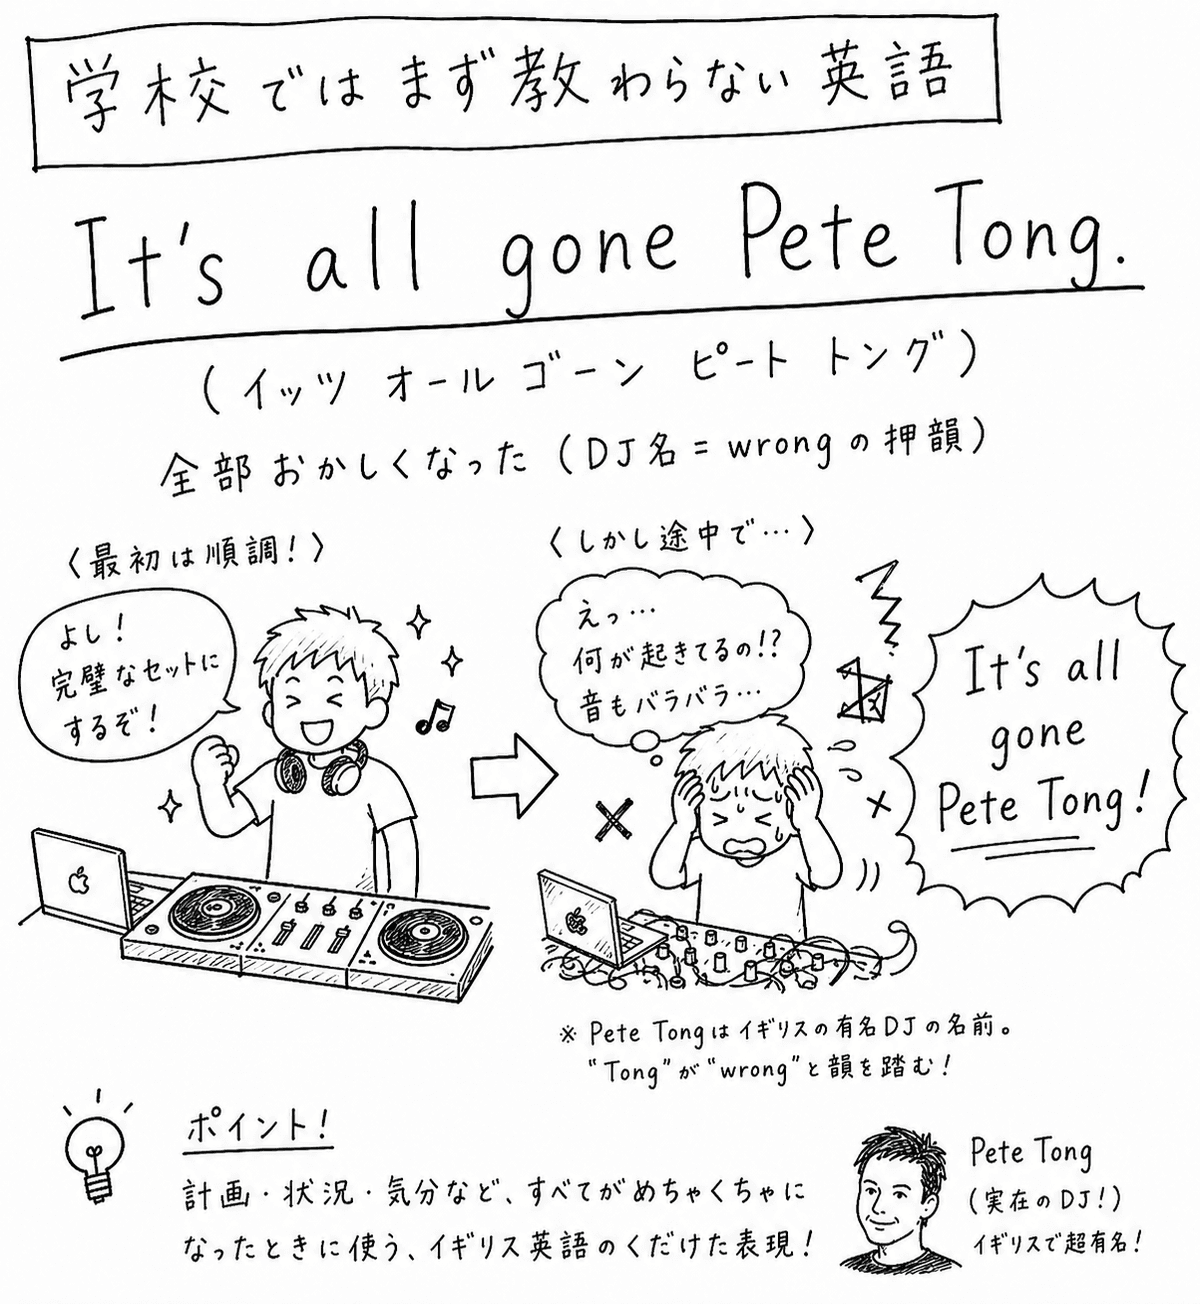 学校ではまず教わらない英語
It's all gone Pete Tong.
（イッツ オール ゴーン ピート トング）
全部おかしくなった（DJ名＝wrongの押韻）
〈最初は順調！〉
よし！
完璧なセットに
するぞ！
〈しかし途中で…〉
えっ…
何が起きてるの!?
音もバラバラ…
It's all
gone
Pete Tong!
※ Pete Tongはイギリスの有名DJの名前。
"Tong"が"wrong"と韻を踏む！
ポイント！
計画・状況・気分など、すべてがめちゃくちゃに
なったときに使う、イギリス英語のくだけた表現！
Pete Tong
（実在のDJ！）
イギリスで超有名！